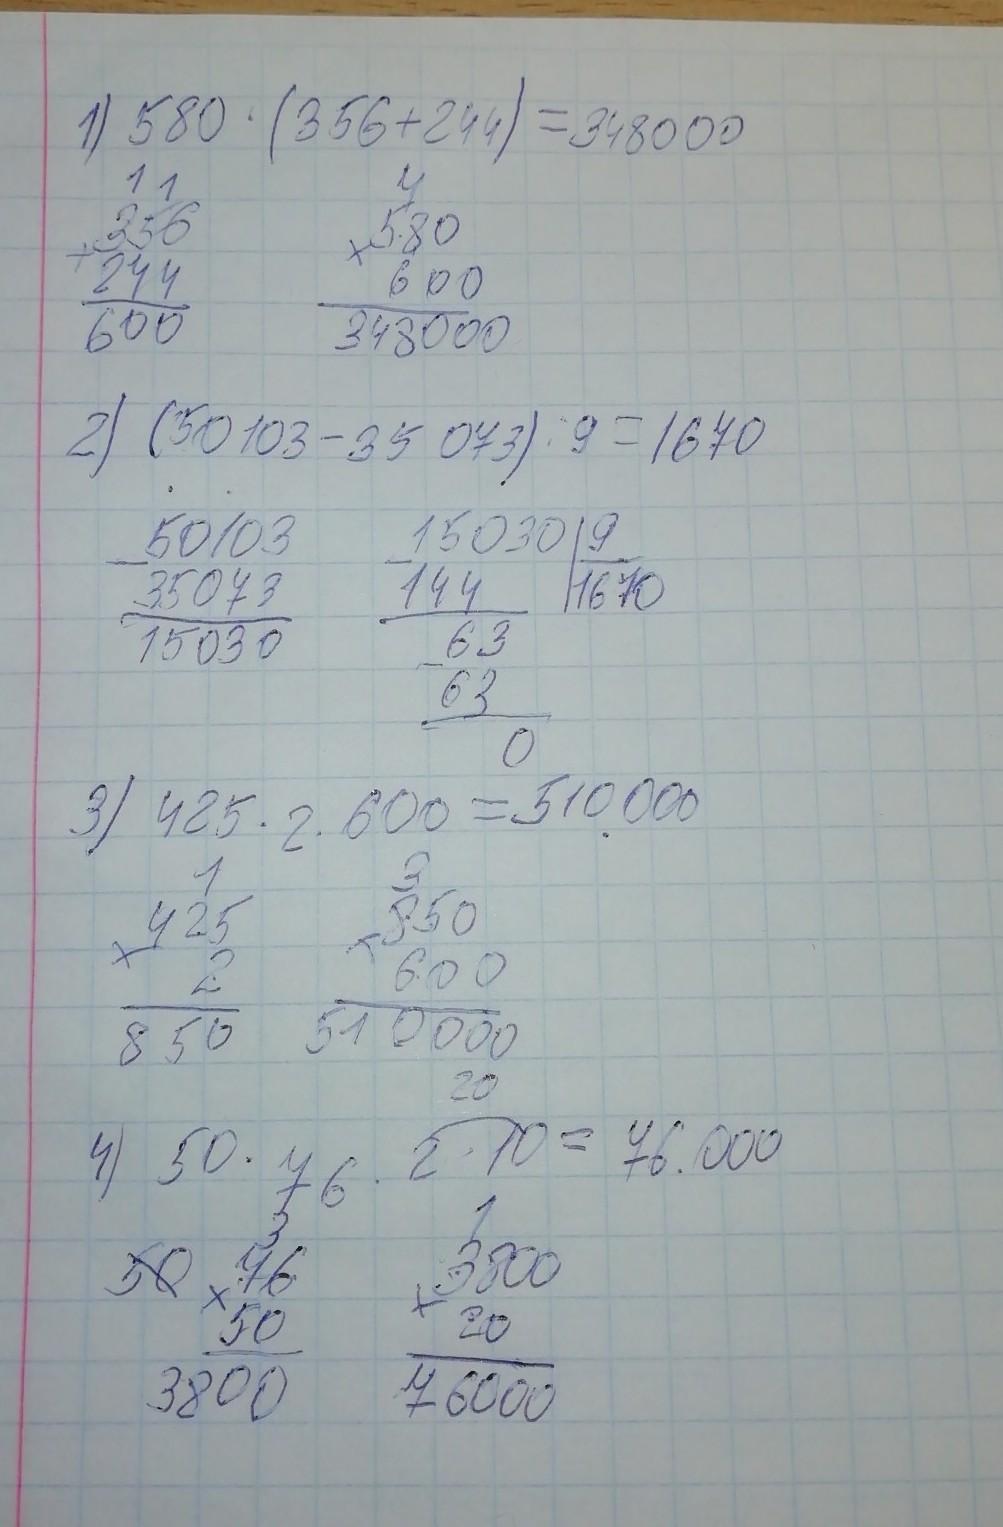 1) 580 · (356+244) = 348000
11
+ 356
244
600
4
× 580
600
348000
2) (50103 - 35073) : 9 = 1670
- 50103
35073
15030
- 15030 | 9
144 | 1670
- 63
63
0
3) 425 · 2 · 600 = 510.000
1
× 425
2
850
3
× 850
600
510000
20
4) 50 · 76 · 2 · 10 = 76.000
3
50 × 76
50
3800
1
× 3800
20
76000